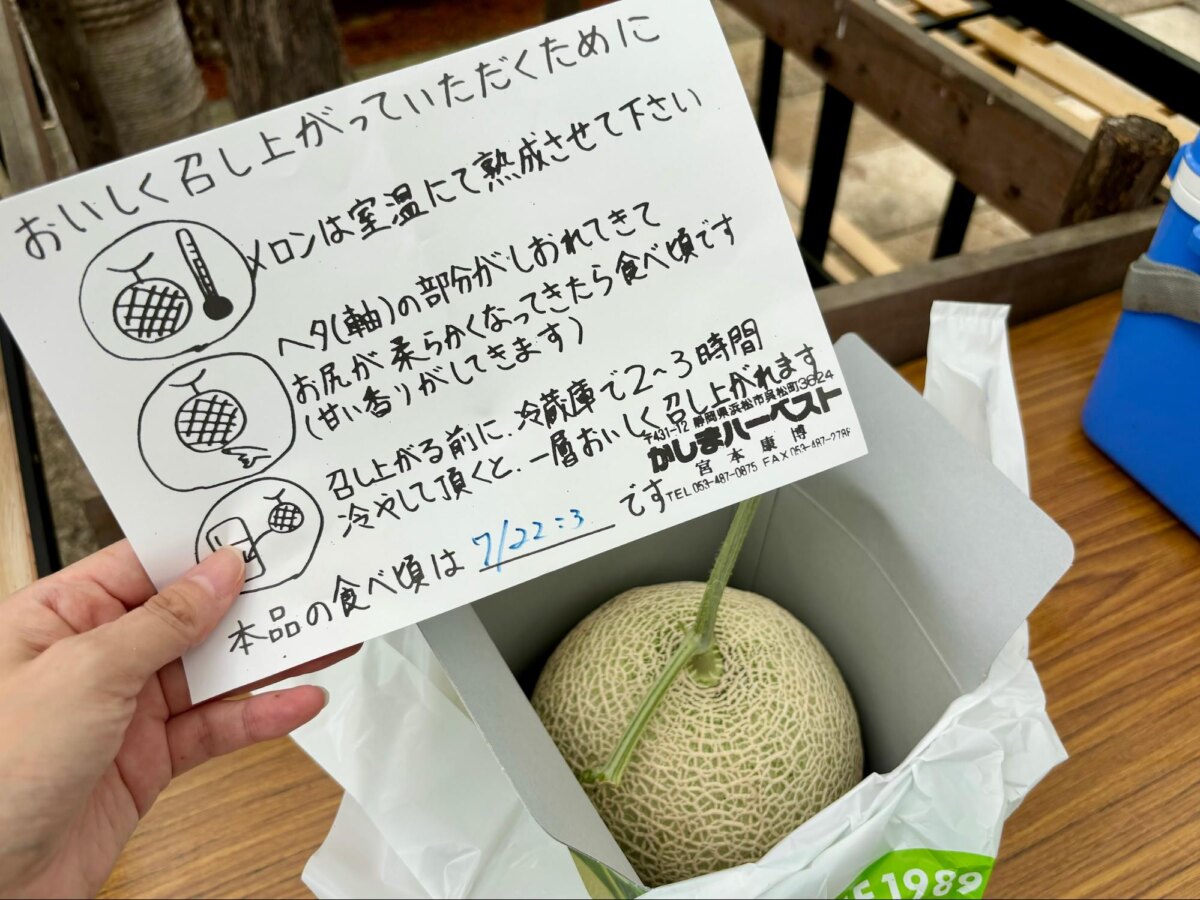 おいしく召し上がっていただくために
メロンは室温にて熟成させて下さい
ヘタ(軸)の部分がしおれてきて
お尻が柔らかくなってきたら食べ頃です
(甘い香りがしてきます)
召し上がる前に、冷蔵庫で2~3時間
冷やして頂くと、一層おいしく召し上がれます
本品の食べ頃は 7/22:3 です
〒431-12 静岡県浜松市呉松町3624
かしまハーベスト
宮本康博
TEL 053-487-0875 FAX 053-487-2788
E 1989